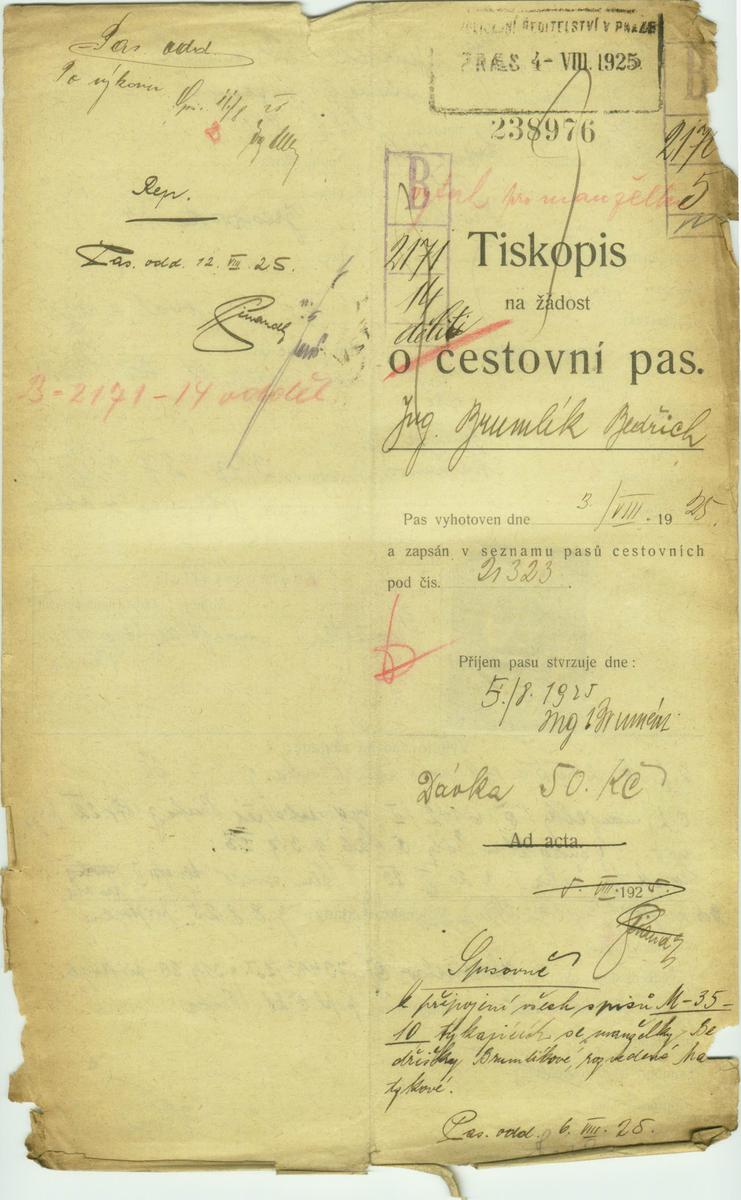 Pas. odd.
Po výkonu
Rep.
Pas. odd. 12. VIII. 25.
B-2171-14 odděl
POLICEJNÍ ŘEDITELSTVÍ V PRAZE
PRÆS 4-VIII.1925
238976
B
2171
5
B
2171
14
pro manželku
Tiskopis
na žádost
o cestovní pas.
Ing. Brumlík Bedřich
Pas vyhotoven dne 3/VIII. 1925.
a zapsán v seznamu pasů cestovních
pod čís. 21323.
Příjem pasu stvrzuje dne:
5./8. 1925
Dávka 50. Kč
Ad acta.
5. VIII. 1925.
Spisovně
k připojení všech spisů M-35-
10 týkajících se manželky Be-
dřišky Brumlíkové, rozvedené Ma-
tykové.
Pas. odd. 6. VIII. 25.